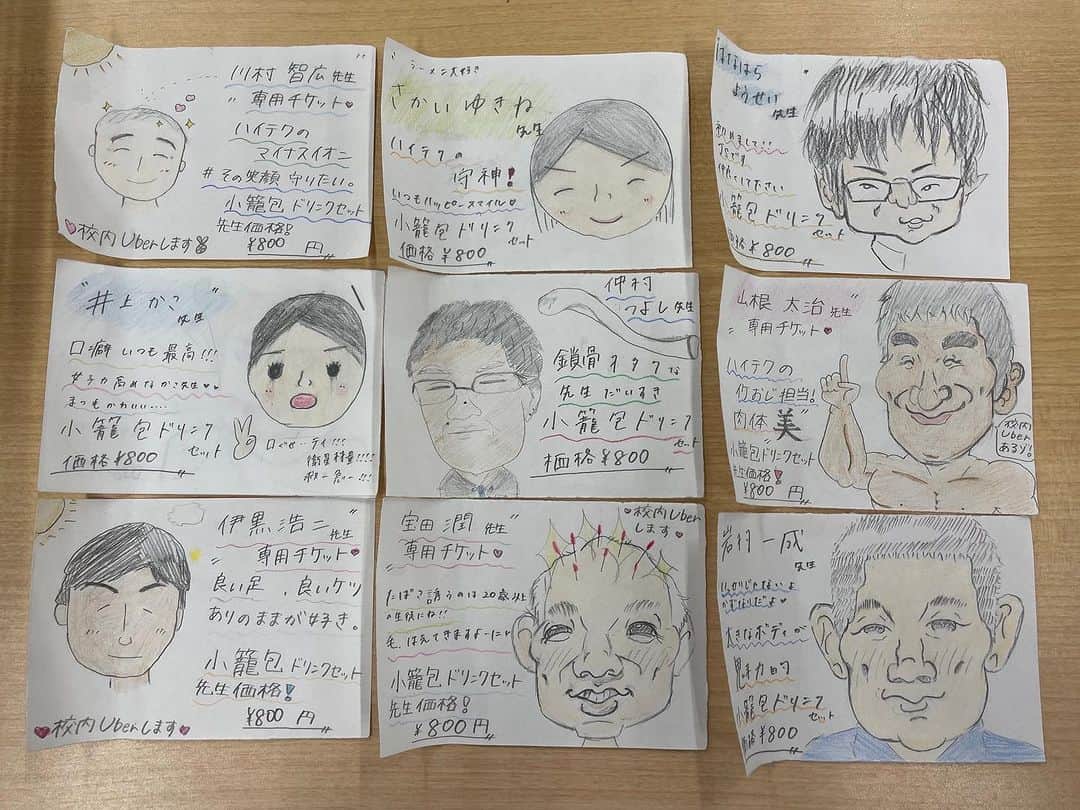 川村 智広 先生
"専用チケット
ハイテクの
マイナスイオン
#その笑顔 守りたい。
小籠包ドリンクセット
先生価格!
¥800 円
校内Uberします
"ラーメン大好き
さかい ゆきね
先生
ハイテクの
守神!
いつもハッピースマイル
小籠包 ドリンク
セット
価格 ¥800
はなはら
ようせい
先生
初めまして!!
仲良くして下さい
小籠包 ドリンク
セット
価格¥800
"井上 かこ"
先生
口癖 いつも 最高!!!
女子力高めなかこ先生
まつもかわいい....
小籠包ドリンク
セット
価格¥800
仲村
つよし先生
鎖骨オタクな
先生だいすき
小籠包ドリンク
セット
価格¥800
山根 太治 先生"
"専用チケット
ハイテクの
担当!
肉体"美"
小籠包ドリンクセット
先生価格!
¥800 円
校内
Uber
あるゾ!
伊黒 浩二 先生
"専用チケット
良い足、良いケツ
ありのままが好き。
小籠包 ドリンクセット
先生価格!
¥800 円
校内Uberします
宝田 潤 先生"
専用チケット
校内Uber
します
たばこ誘うのは20歳以上
の生徒にね!!
毛、はえてきますよーに
小籠包ドリンクセット
先生価格!
¥800円
岩村 一成
先生
大きなボディが
魅力的
小籠包ドリンク
セット
価格 ¥800